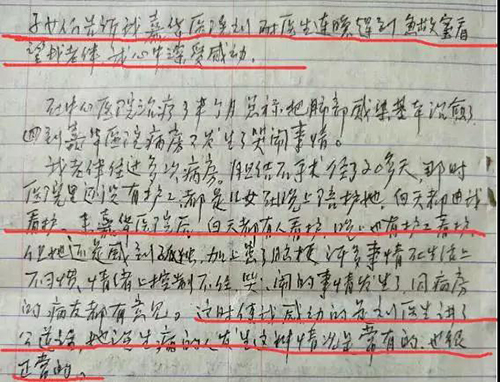 子女们告诉我嘉华医院刘 医生连晚得到 急救室看
望我老伴 我心中深受感动。
在中心医院治疗了半个月总标把肺部感染基本治愈了
回到嘉华医院病房又发生了哭闹事情。
我老伴经过多次病房，胆结石手术 住了20多天，那时
医院里还没有护工 都是儿女在晚上陪护她，白天都由我
看护，来嘉华医院后，白天都有人看护 晚上也有护工看护
但她还是感到孤独，加上患了脑梗 许多事情在生活上
不习惯，情绪上控制不住 哭、闹的事情发生了，同病房
的病友都有意见。这时使我感动的是刘医生讲了
公道话，她说生病的人发生这种情况是常有的，也很
正常的。